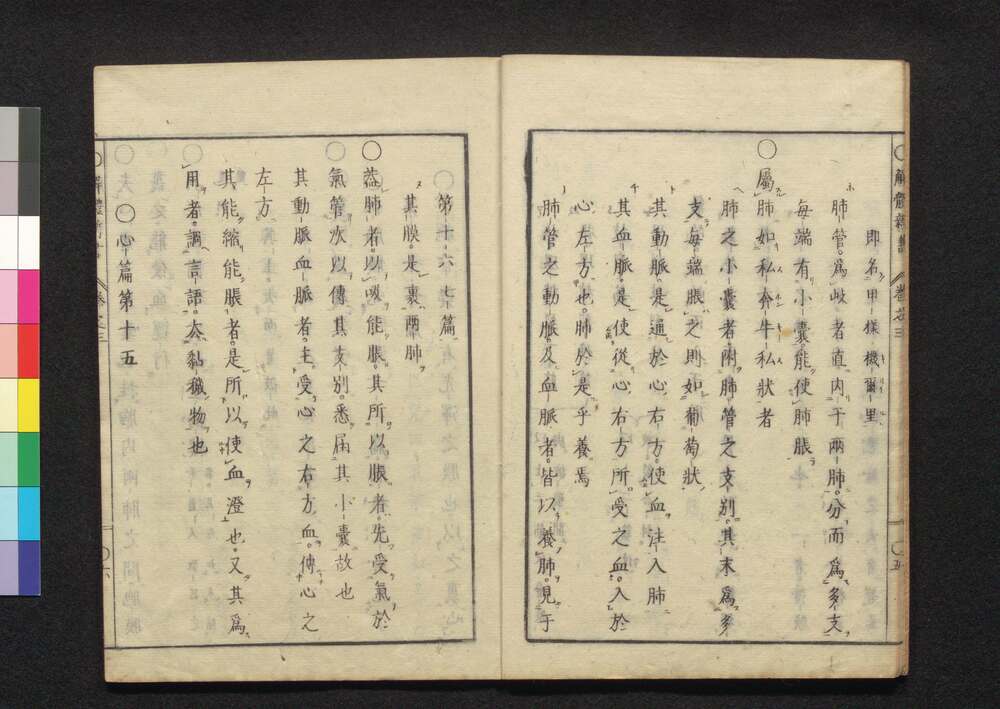 即名甲樣機爾里
ホ肺管。為岐者直内于兩肺。分而為多支
每端有小囊能使肺脹
○屬肺如私奔牛私狀者
ヘ肺之小囊者。附肺管之支別。其末為多
支。每端脹之則如葡萄狀
ト其動脈。是通於心右方。使血注入肺
チ其血脈。是使從心右方所受之血。入於
心左方也。肺於是乎養焉
リ肺管之動脈及血脈者。皆以養肺。見于
第十六七篇
ヌ其膜。是裹兩肺
○蓋肺者。以吸能脹。其所以脹者。先受氣於
氣管。次以傳其支別。悉届其小囊故也
其動脈血脈者。主受心之右方血。傳心之
左方
其能縮能脹者。是所以使血澄也。又其為
用者。調言語。去黏穢物也
○心篇第十五
解體新書
卷之三
○五
解體新書
卷之三
○六